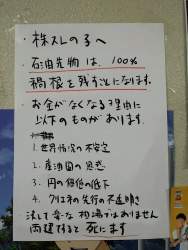 ・株スレの子へ
・石油先物は、100%
禍根を残すことになります。
・お金がなくなる理由に
以下のものがあります。
1. 世界情況の不安定
2. 産油国の思惑
3. 円の価値の低下
4. クリエネの先行の不透明
決して楽な相場ではありません
両建すると死にます